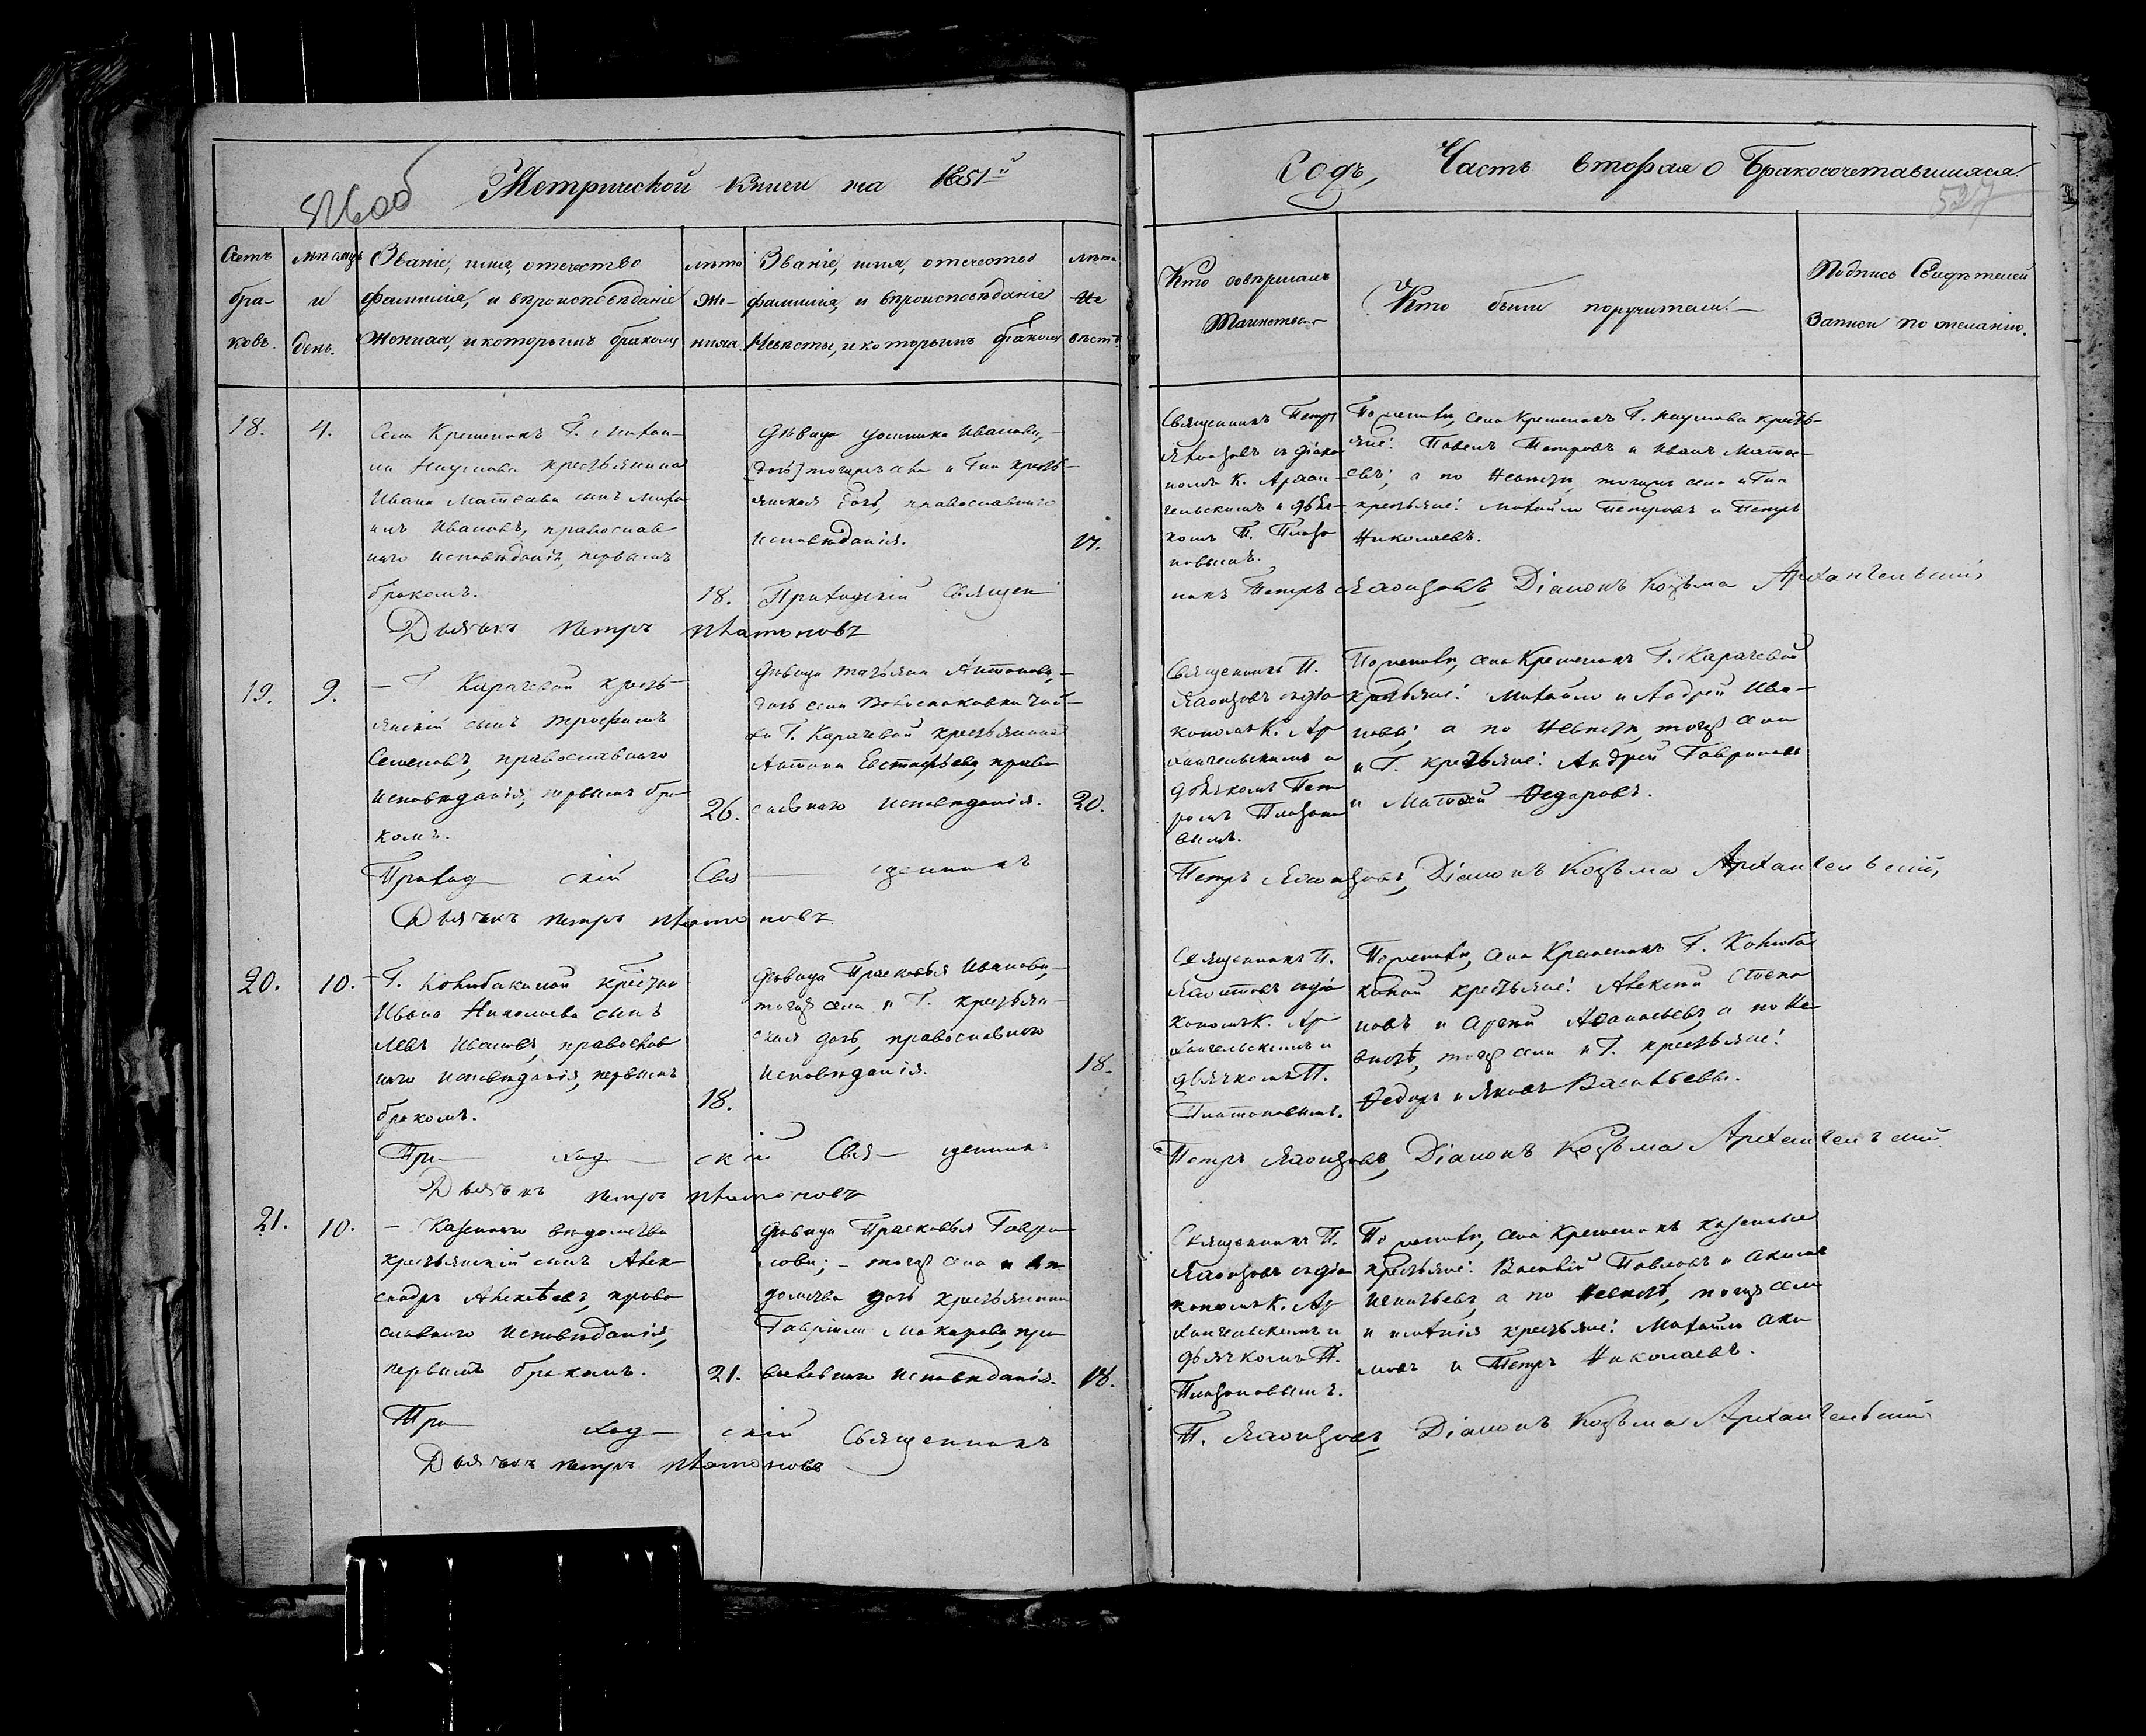 526об
Метрической книги на 1851й
Годъ, Часть вторая о Бракосочетавшихся.
527
Счетъ бра- ковъ.
Мѣсяцъ и день.
Званіе, имя, отечество
фамилія, и вѣроисповѣданіе
Жениха, и которымъ бракомъ
лѣта Же- ниха.
Званіе, имя, отечество
фамилія, и вѣроисповѣданіе
Невѣсты, и которымъ бракомъ
лѣта Не вѣсты.
Кто совершалъ
Таинство
Кто были поручители.
Подпись Свидѣтелей
Записи по желанію.
18.
4.
Села Крещенокъ Г. Михаи-
ла Наумова крестьянина
Ивана Матѳеева сынъ Миха
илъ Ивановъ, православ
наго исповѣданія, первымъ
бракомъ.
18.
Дѣвица Иванова,
тогожъ села и Г-на кресть-
янская дочь, православнаго
исповѣданія.
17.
Священникъ Петръ
съ діако
номъ К. Архан-
гельскимъ и дьяч-
комъ П. Плато
новымъ.
По женихѣ, села Крещенокъ Г. Наумова кресть-
яне: Павелъ Петровъ и Иванъ Матѳе-
евъ; а по Невѣстѣ, тогожъ села и Г-на
крестьяне: Михайло Петровъ и Петръ
Николаевъ.
Приходскій Священ
никъ Петръ Діаконъ Козьма Архангельскій,
Дьячокъ Петръ Платоновъ
19.
9.
— Г. Карачевой кресть-
янскій сынъ Трофимъ
Семеновъ, православнаго
исповѣданія, первымъ бра
комъ.
26.
Дѣвица Татьяна Антонова,
дочь села
Г. Карачевой крестьянина
Антона Евстафьева, право
славнаго исповѣданія.
20.
Священникъ П.
съ діа
кономъ К. Ар
хангельскимъ и
дьячкомъ Пет
ромъ Платоно
вымъ.
По женихѣ, села Крещенокъ Г. Карачевой
крестьяне: Михайло и Андрей Ива-
новы; а по Невѣстѣ, тогожъ села
и Г. крестьяне: Андрей Гавриловъ
и Матѳей Ѳедоровъ.
Приходскій Священникъ
Петръ Діаконъ Козьма Архангельскій,
Дьячокъ Петръ Платоновъ
20.
10.
— Г. крестьян
Ивана Николаева сынъ
Левъ Ивановъ, православ
наго исповѣданія, первымъ
бракомъ.
18.
Дѣвица Прасковья Иванова,
тогожъ села и Г. крестьян-
ская дочь, православнаго
исповѣданія.
18.
Священникъ П.
съ діа
кономъ К. Ар
хангельскимъ и
дьячкомъ П.
Платоновымъ.
По женихѣ, села Крещенокъ Г.
крестьяне: Алексѣй Степа
новъ и Сергѣй Аѳанасьевъ, а по Не
вѣстѣ, тогожъ села и Г. крестьяне:
Ѳедоръ и Яковъ Васильевы.
Приходскій Священникъ
Петръ Діаконъ Козьма Архангельскій.
Дьячокъ Петръ Платоновъ
21.
10.
— Казеннаго вѣдомства
крестьянскій сынъ Алек
сандръ Алексѣевъ, право
славнаго исповѣданія,
первымъ бракомъ.
21.
Дѣвица Прасковья Гаври
лова; — тогожъ села и вѣ
домства дочь крестьянина
Гавріила Макарова, пра
вославнаго исповѣданія.
18.
Священникъ П.
съ діа
кономъ К. Ар
хангельскимъ и
дьячкомъ П.
Платоновымъ.
По женихѣ, села Крещенокъ казенные
крестьяне: Василій Павловъ и Акимъ
Игнатьевъ, а по Невѣстѣ, тогожъ села
и крестьяне: Михайло Аки
мовъ и Петръ Николаевъ.
Приходскій Священникъ
П. Діаконъ Козьма Архангельскій
Дьячокъ Петръ Платоновъ